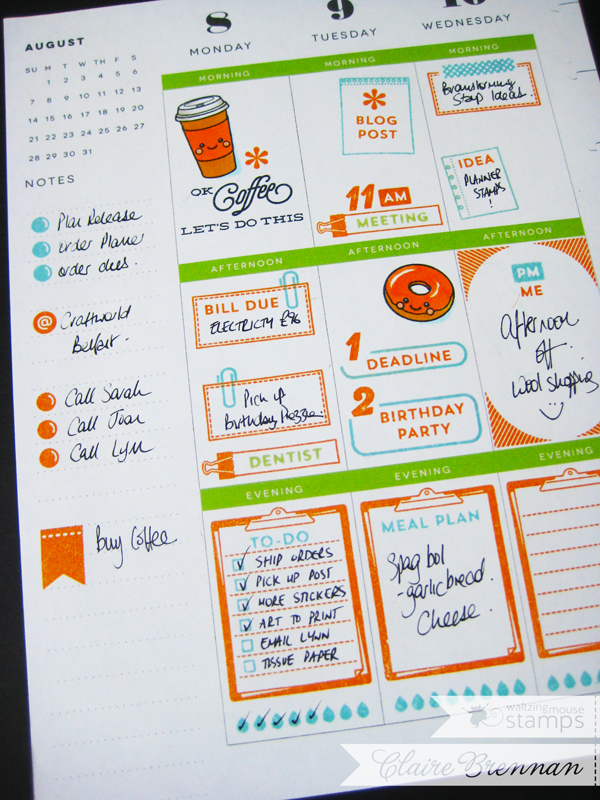 AUGUST
SU M T W TH F S
1 2 3 4 5 6
7 8 9 10 11 12 13
14 15 16 17 18 19 20
21 22 23 24 25 26 27
28 29 30 31
NOTES
Plan Release
order
order dies.
@ Craftworld
Belfast.
Call Sarah
Call Joan
Call Lynn
Buy Coffee
8
MONDAY
MORNING
OK Coffee
LET'S DO THIS
AFTERNOON
BILL DUE
ELECTRICTY £96
Pick up
Birthday
DENTIST
EVENING
TO-DO
SHIP ORDERS
PICK UP POST
MORE STICKERS
ART TO PRINT
EMAIL LYNN
TISSUE PAPER
9
TUESDAY
MORNING
BLOG
POST
11 AM
MEETING
AFTERNOON
1
DEADLINE
2
BIRTHDAY
PARTY
EVENING
MEAL PLAN
Spag bol
-garlicbread.
Cheese.
10
WEDNESDAY
MORNING
Brainstorming
Stamp Ideas.
IDEA
PLANNER
STAMPS
!
AFTERNOON
PM
ME
Afternoon
off.
Wool shopping
EVENING
waltzingmouse
stamps
Claire Brennan